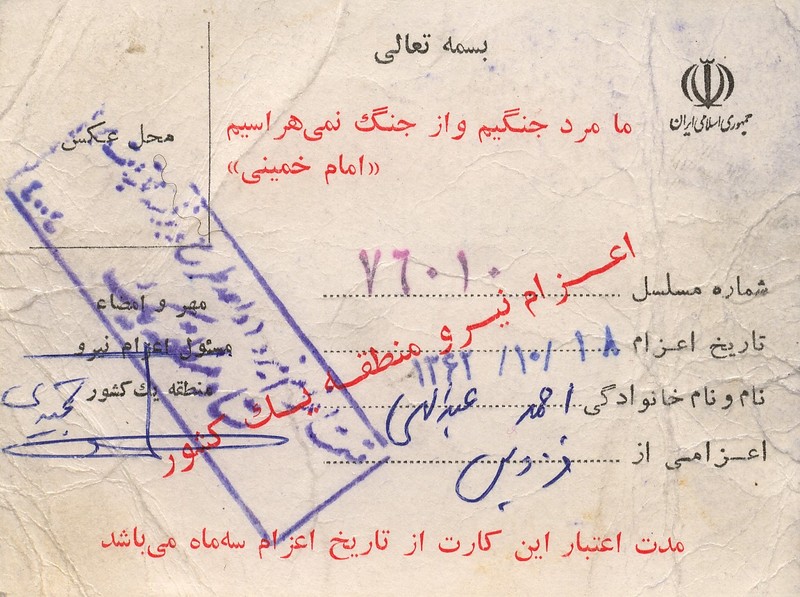 بسمه تعالی
جمهوری اسلامی ایران
ما مرد جنگیم و از جنگ نمی‌هراسیم
«امام خمینی»
محل عکس
اعزام نیرو منطقه یک کشور
شماره مسلسل ۷۶۰۱۰
تاریخ اعزام ۱۸ /۱۰/ ۱۳۶۲
نام و نام خانوادگی احمد عبدالهی
اعزامی از فردوس
مهر و امضاء
مسئول اعزام نیرو
منطقه یک کشور
مدت اعتبار این کارت از تاریخ اعزام سه‌ماه می‌باشد